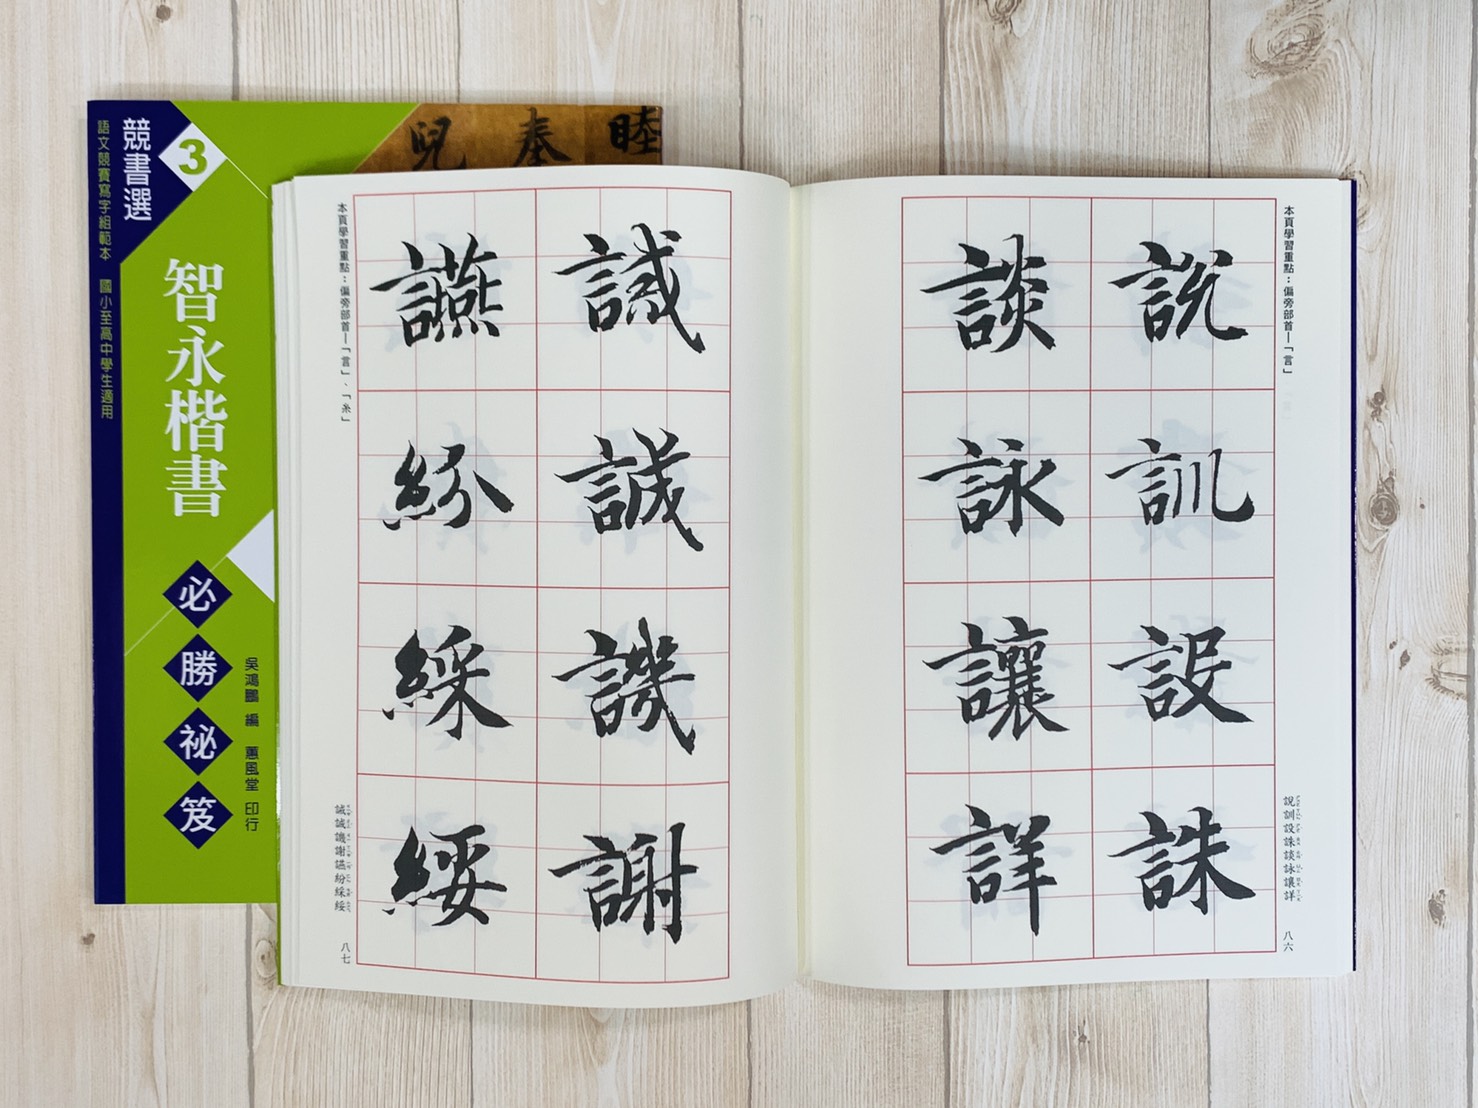 競書選
3
語文競賽寫字組範本　國小至高中學生適用
智永楷書
必勝祕笈
吳鴻鵬 編　蕙風堂 印行
兒
奉
睦
本頁學習重點：偏旁部首—「言」
說訓設誅
談詠讓詳
說訓設誅談詠讓詳
八六
本頁學習重點：偏旁部首—「言」、「糸」
誡誠譏謝
讌紛綵綏
誡誠譏謝讌紛綵綏
八七